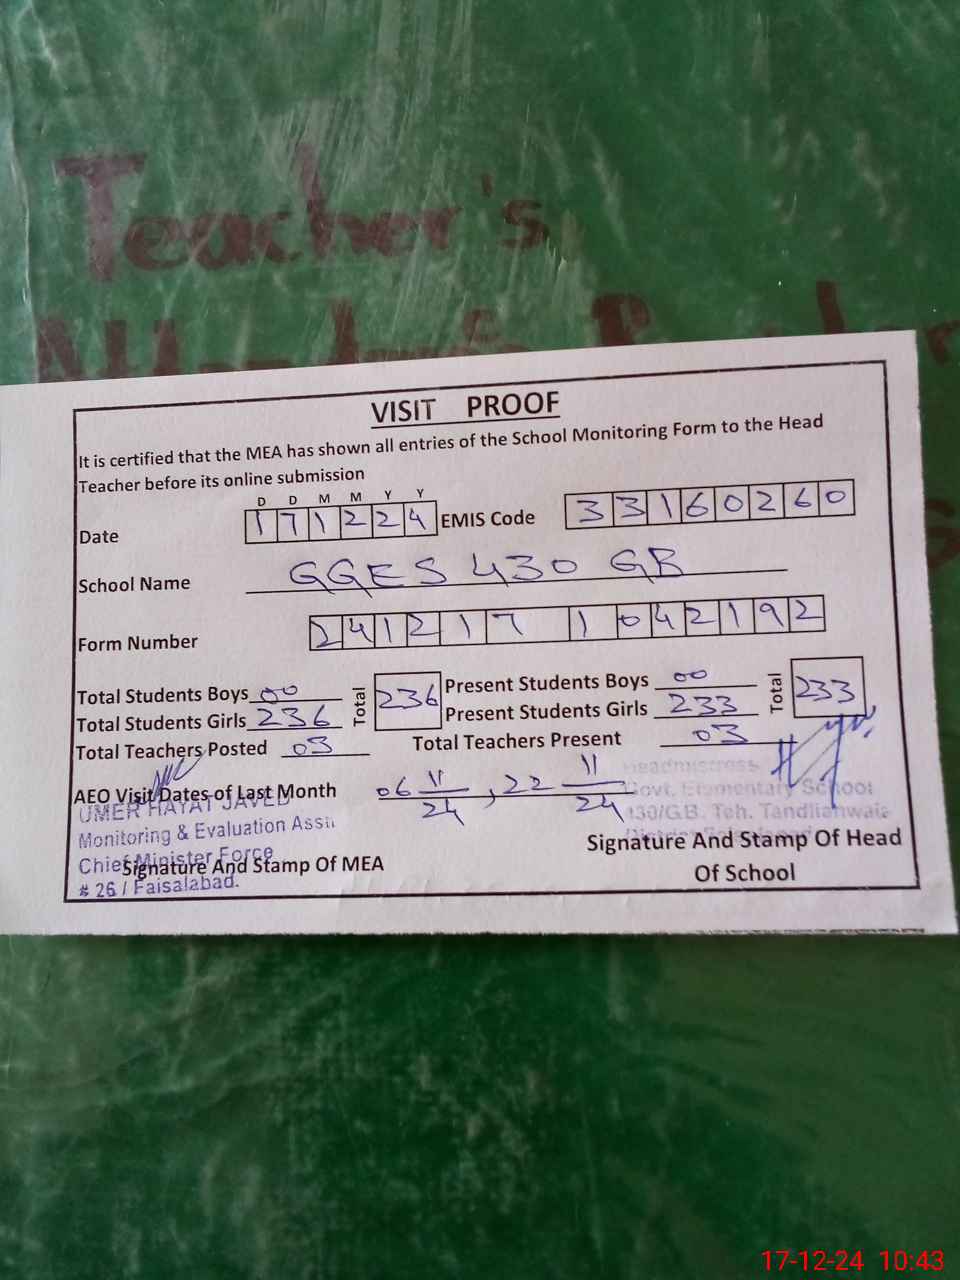 Teacher's
VISIT PROOF
It is certified that the MEA has shown all entries of the School Monitoring Form to the Head
Teacher before its online submission
D D M M Y Y
Date 171224 EMIS Code 33160260
School Name GGES 430 GB
Form Number 241217 1042192
Total Students Boys 00 Total 236 Present Students Boys 00 Total 233
Total Students Girls 236 Present Students Girls 233
Total Teachers Posted 03 Total Teachers Present 03
AEO Visit Dates of Last Month 06 11/24, 22 11/24
UMER HAYAT JAVED
Monitoring & Evaluation Asstt
Chief Minister Force
# 26 / Faisalabad.
Signature And Stamp Of MEA
Headmistress
Govt. Elementary School
430/GB. Teh. Tandlianwala
Signature And Stamp Of Head
Of School
17-12-24 10:43